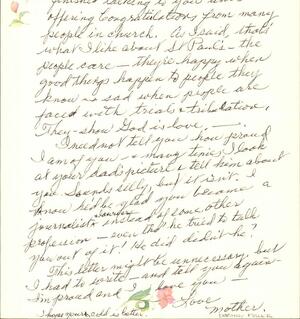 finished talking to you and
offering congratulations from many
people in church. As I said, that's
what I like about St Paul's - the
people care - they're happy when
good things happen to people they
know & sad when people are
faced with trials & tribulation.
They show God is love.
I need not tell you how proud
I am of you - & many times I look
at your dad's picture & tell him about
you. Sounds silly, but it isn't. I
know he'd be glad you became a
journalist instead of some other
profession - even tho' he tried to talk
you out of it! He did didn't he?
This letter might be unnecessary, but
I had to write - and tell you again -
I'm proud and I love you -
Love
Mother.
Hope your cold is better.